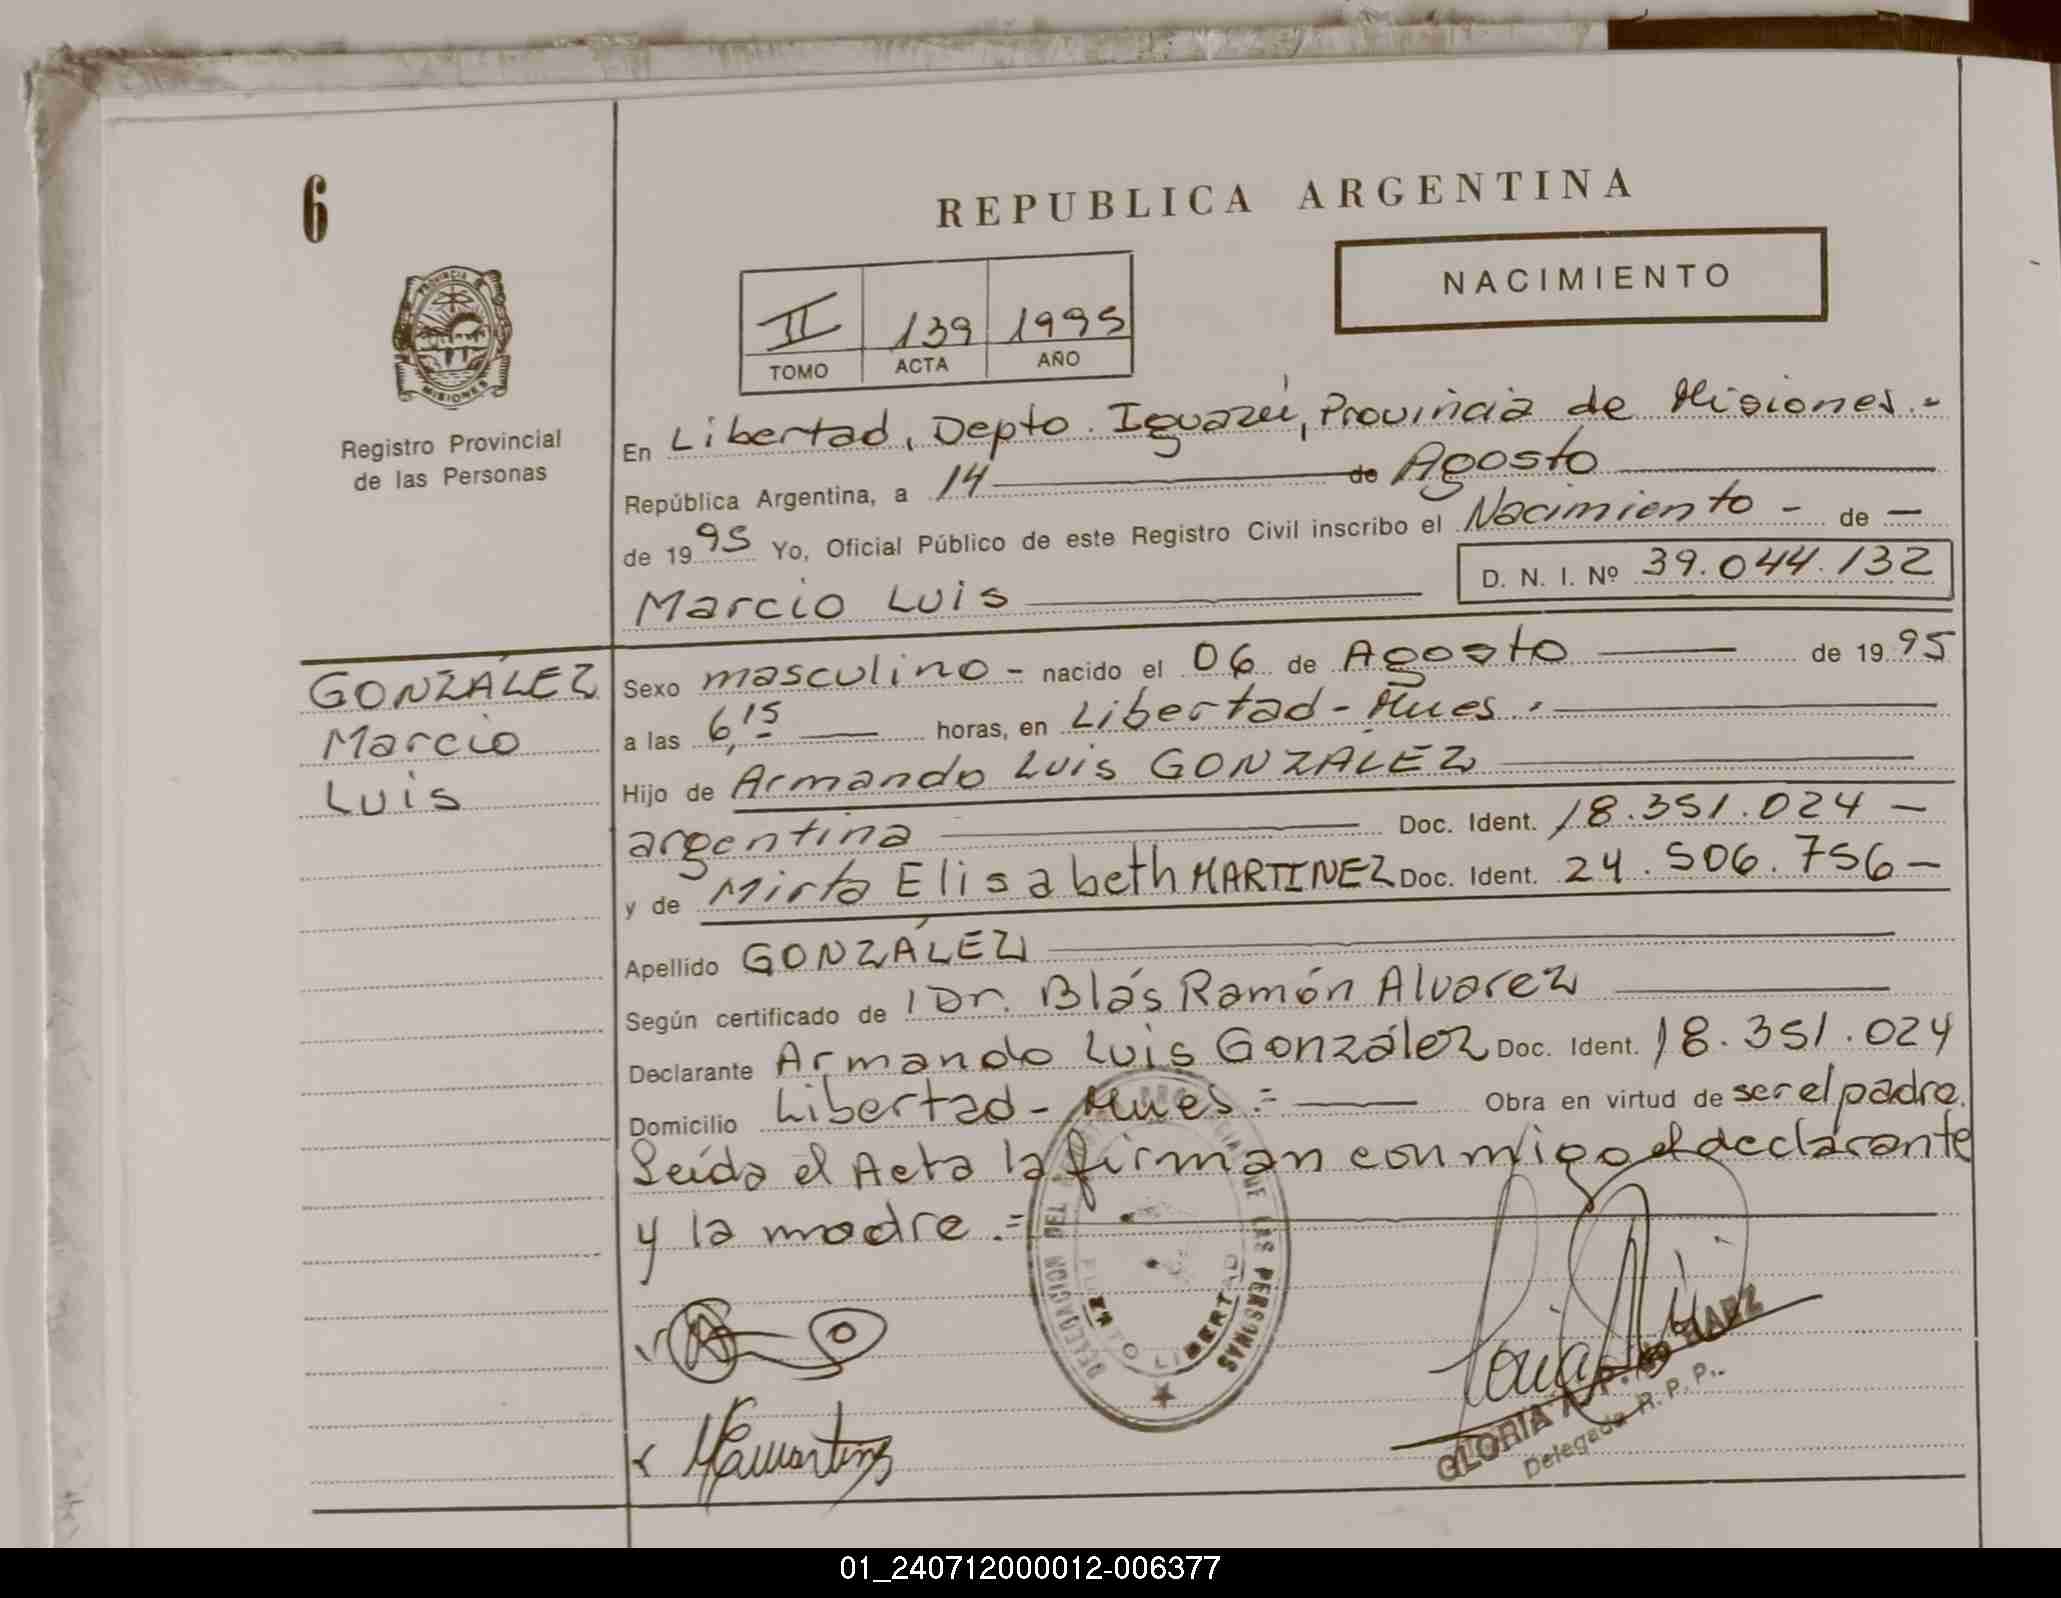 6
REPUBLICA ARGENTINA
NACIMIENTO
II 139 1995
TOMO ACTA AÑO
PROVINCIA
MISIONES
Registro Provincial
de las Personas
En Libertad, Depto. Iguazú, Provincia de Misiones.-
República Argentina, a 14 de Agosto
de 1995 Yo, Oficial Público de este Registro Civil inscribo el Nacimiento - de -
Marcio Luis D. N. I. Nº 39.044.132
GONZÁLEZ
Marcio
Luis
Sexo masculino - nacido el 06 de Agosto de 1995
a las 6,15 horas, en Libertad - Mnes.
Hijo de Armando Luis GONZÁLEZ
argentina Doc. Ident. 18.351.024 -
y de Mirta Elisabeth MARTINEZ Doc. Ident. 24.506.756 -
Apellido GONZÁLEZ
Según certificado de Dr. Blás Ramón Alvarez
Declarante Armando Luis González Doc. Ident. 18.351.024
Domicilio Libertad - Mnes.= Obra en virtud de ser el padre.
Leída el Acta la firman conmigo el declarante
y la madre.=
DELEGACION DEL LAS PERSONAS
PUERTO LIBERTAD
GLORIA
Delegada R. P. P.
01_240712000012-006377